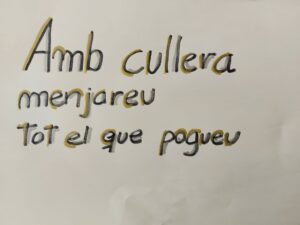 Amb cullera
menjareu
Tot el que pogueu